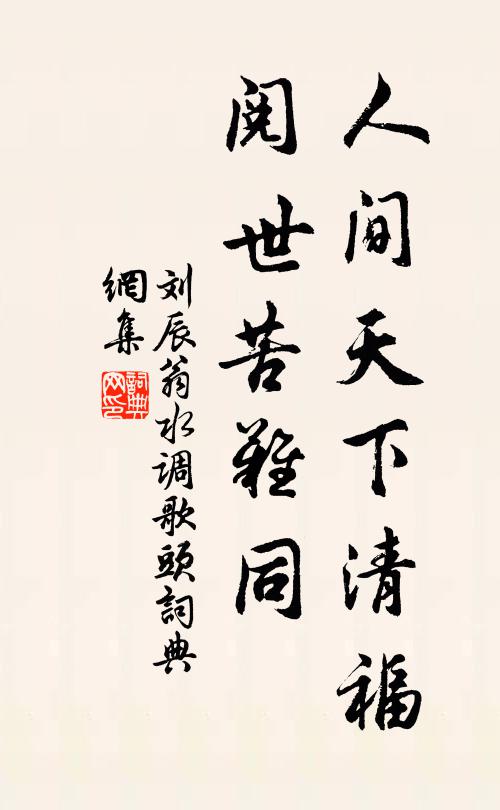 人間天下清福
閱世苦難同
刘辰翁水调歌頭詞典
網集
詞典
网印